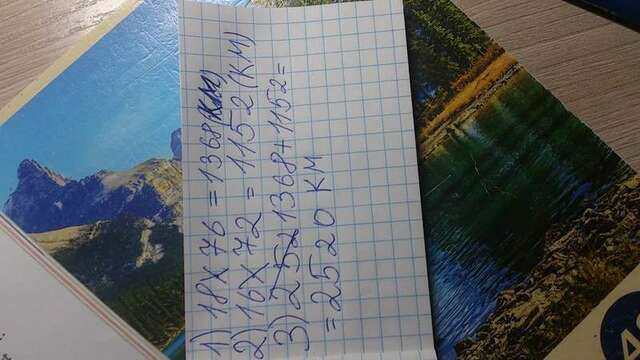 1) 18X76 = 1368(КМ)
2) 16X72 = 1152(КМ)
3) 252 1368+1152=
=2520 КМ